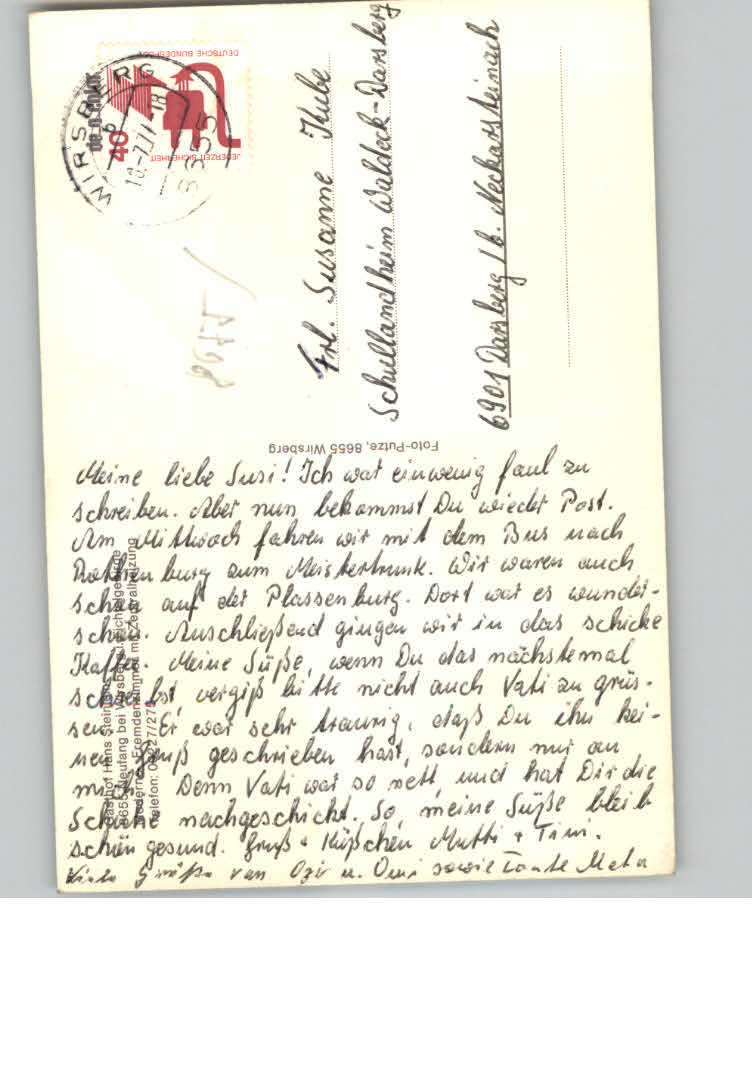 Meine liebe Susi! Ich war einwenig faul zu
schreiben. Aber nun bekommst Du wieder Post.
Am Mittwoch fahren wir mit dem Bus nach
Rothenburg zum Meistertrunk. Wir waren auch
schon auf der Plassenburg. Dort war es wunder-
schön. Anschließend gingen wir in das schicke
Kaffee. Meine Süße, wenn Du das nächstemal
schreibst, vergiß bitte nicht auch Vati zu grüs-
sen. Er war sehr traurig, daß Du ihm kei-
nen Gruß geschrieben hast, sondern nur an
mich. Denn Vati war so nett, und hat Dir die
Schuhe nachgeschickt. So, meine Süße bleib
schön gesund. Gruß + Küßchen Mutti + Timi.
Viele Grüße von Opi u. Omi sowie Tante Meta
Gasthof Hans Stein
8655 Neufang bei Wirsberg
Moderne Fremdenzimmer mit Zentralheizung
Telefon: 09227/27
Foto-Putze, 8655 Wirsberg
Frl. Susanne Kube
Schullandheim Waldeck-Darsberg
6901 Darsberg / b. Neckarsteinach
DEUTSCHE BUNDESPOST
JEDERZEIT SICHERHEIT
40
WIRSBERG
b
18
8655